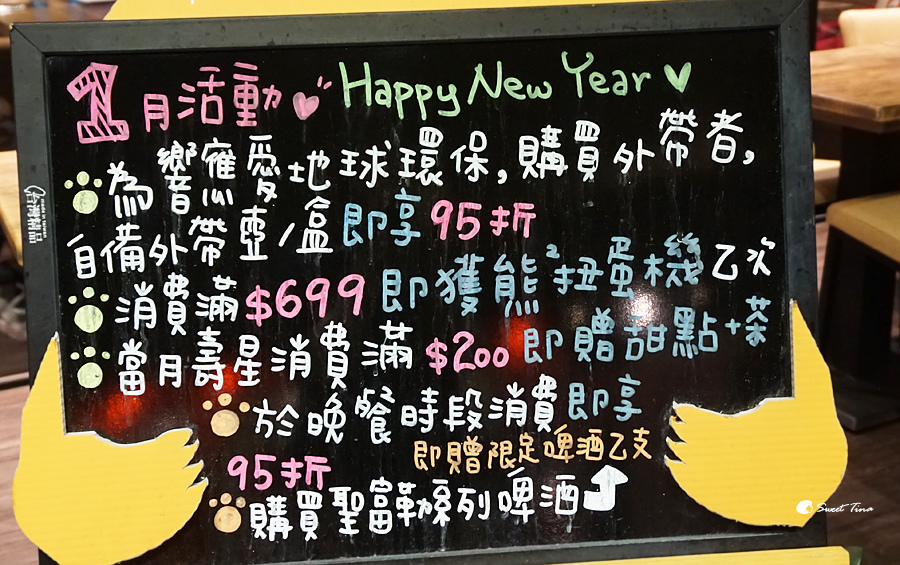 1月活動 Happy New Year
為響應愛地球環保,購買外帶者,
自備外帶壺/盒即享95折
消費滿$699即獲熊²扭蛋機乙次
當月壽星消費滿$200即贈甜點+茶
於晚餐時段消費即享
95折
即贈限定啤酒乙支
購買聖富勒系列啤酒
台灣精品
Sweet Tina